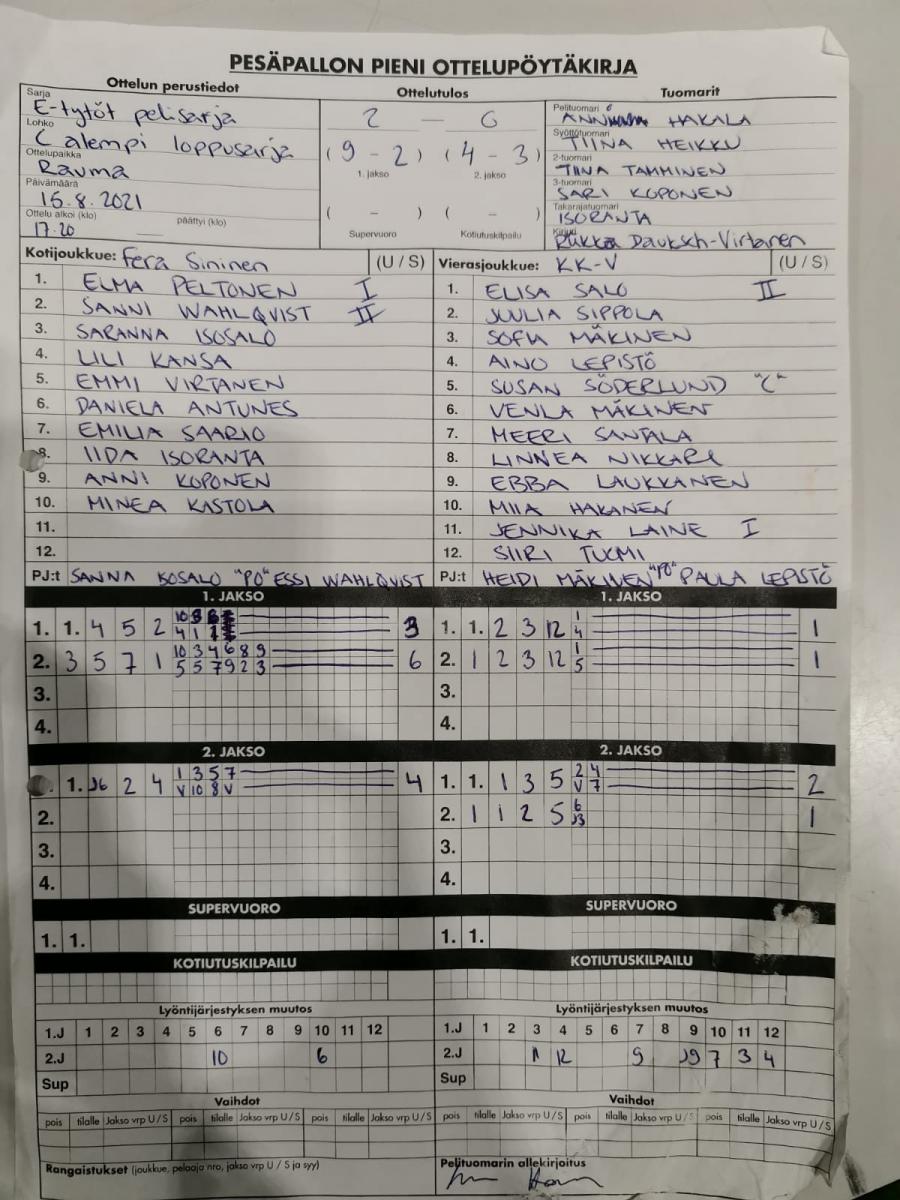 PESÄPALLON PIENI OTTELUPÖYTÄKIRJA
Ottelun perustiedot
Ottelutulos
Tuomarit
Sarja
E-tytöt pelisarja
Lohko
C alempi loppusarja
Ottelupaikka
Rauma
Päivämäärä
15.8.2021
Ottelu alkoi (klo) päättyi (klo)
17.20
2 — 0
(9 - 2) (4 - 3)
1. jakso 2. jakso
( - ) ( - )
Supervuoro Kotiutuskilpailu
Pelituomari
HAKALA
Syöttötuomari
TIINA HEIKKU
2-tuomari
TIINA TAMMINEN
3-tuomari
SARI KOPONEN
Takarajatuomari
ISORANTA
Kirjuri
Riikka Dauksch-Virtanen
Kotijoukkue: Fera Sininen (U / S)
1. ELMA PELTONEN I
2. SANNI WAHLQVIST II
3. SARANNA ISOSALO
4. LILI KANSA
5. EMMI VIRTANEN
6. DANIELA ANTUNES
7. EMILIA SAARIO
8. IIDA ISORANTA
9. ANNI KOPONEN
10. MINEA KASTOLA
11.
12.
PJ:t SANNA ISOSALO "PO" ESSI WAHLQVIST
Vierasjoukkue: KK-V (U / S)
1. ELISA SALO II
2. JUULIA SIPPOLA
3. SOFIA MÄKINEN
4. AINO LEPISTÖ
5. SUSAN SÖDERLUND "C"
6. VENLA MÄKINEN
7. MEERI SANTALA
8. LINNEA NIKKARI
9. EBBA LAUKKANEN
10. MIIA HAKANEN
11. JENNIKA LAINE I
12. SIIRI TUOMI
PJ:t HEIDI MÄKINEN "PO" PAULA LEPISTÖ
1. JAKSO
1. 1. 4 5 2 3
2. 3 5 7 1 10 3 4 6 8 9 6
5 5 7 9 2 3
3.
4.
1. JAKSO
1. 1. 2 3 12 1 1
4
2. 1 2 3 12 1 1
5
3.
4.
2. JAKSO
1. 2 4 1 3 5 7 4
V 10 8 V
2.
3.
4.
2. JAKSO
1. 1. 1 3 5 2 4 2
V 7
2. 1 1 2 5 6 1
3.
4.
SUPERVUORO
1. 1.
SUPERVUORO
1. 1.
KOTIUTUSKILPAILU
KOTIUTUSKILPAILU
Lyöntijärjestyksen muutos
1.J 1 2 3 4 5 6 7 8 9 10 11 12
2.J 10 6
Sup
Lyöntijärjestyksen muutos
1.J 1 2 3 4 5 6 7 8 9 10 11 12
2.J 12 9 7 3 4
Sup
Vaihdot
pois tilalle Jakso vrp U / S pois tilalle Jakso vrp U / S pois tilalle Jakso vrp U / S
Vaihdot
pois tilalle Jakso vrp U / S pois tilalle Jakso vrp U / S pois tilalle Jakso vrp U / S
Rangaistukset (joukkue, pelaaja nro, jakso vrp U / S ja syy)
Pelituomarin allekirjoitus